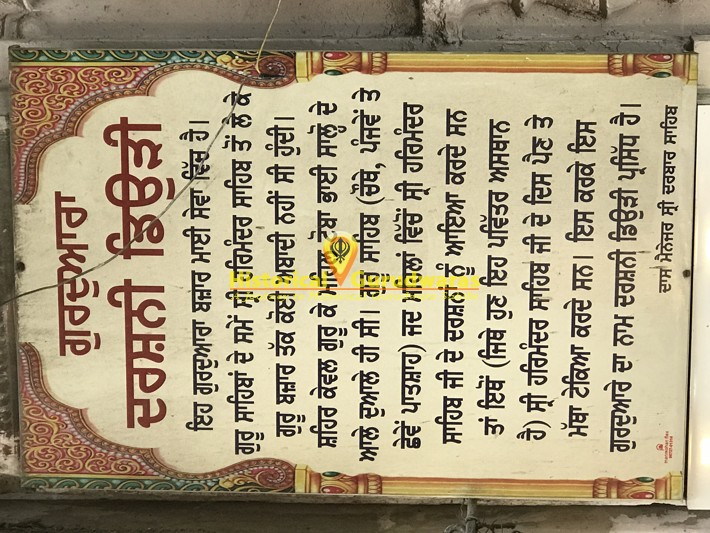 ਗੁਰਦੁਆਰਾ
ਦਰਸ਼ਨੀ ਡਿਉੜੀ
ਇਹ ਗੁਰਦੁਆਰਾ ਬਜ਼ਾਰ ਮਾਈ ਸੇਵਾਂ ਵਿੱਚ ਹੈ।
ਗੁਰੂ ਸਾਹਿਬਾਂ ਦੇ ਸਮੇਂ ਸ੍ਰੀ ਹਰਿਮੰਦਰ ਸਾਹਿਬ ਤੋਂ ਲੈ ਕੇ
ਗੁਰੂ ਬਜ਼ਾਰ ਤੱਕ ਕੋਈ ਅਬਾਦੀ ਨਹੀਂ ਸੀ ਹੁੰਦੀ।
ਸ਼ਹਿਰ ਕੇਵਲ ਗੁਰੂ ਕੇ ਤਥਾ ਭਾਈ ਸਾਲ੍ਹੋ ਦੇ
ਆਲੇ ਦੁਆਲੇ ਹੀ ਸੀ। ਗੁਰੂ ਸਾਹਿਬ (ਚੌਥੇ, ਪੰਜਵੇਂ ਤੇ
ਛੇਵੇਂ ਪਾਤਸ਼ਾਹ) ਜਦ ਮਹਿਲਾਂ ਵਿੱਚੋਂ ਸ੍ਰੀ ਹਰਿਮੰਦਰ
ਸਾਹਿਬ ਜੀ ਦੇ ਦਰਸ਼ਨਾਂ ਨੂੰ ਆਇਆ ਕਰਦੇ ਸਨ
ਤਾਂ ਇਥੋਂ (ਜਿਥੇ ਹੁਣ ਇਹ ਪਵਿੱਤਰ ਅਸਥਾਨ
ਹੈ) ਸ੍ਰੀ ਹਰਿਮੰਦਰ ਸਾਹਿਬ ਜੀ ਦੇ ਦਿਸ ਪੈਣ ਤੇ
ਮੱਥਾ ਟੇਕਿਆ ਕਰਦੇ ਸਨ। ਇਸ ਕਰਕੇ ਇਸ
ਗੁਰਦੁਆਰੇ ਦਾ ਨਾਮ ਦਰਸ਼ਨੀ ਡਿਉੜੀ ਪ੍ਰਸਿੱਧ ਹੈ।
ਦਾਸ ਮੈਨੇਜਰ ਸ੍ਰੀ ਦਰਬਾਰ ਸਾਹਿਬ
Historical Gurudwaras